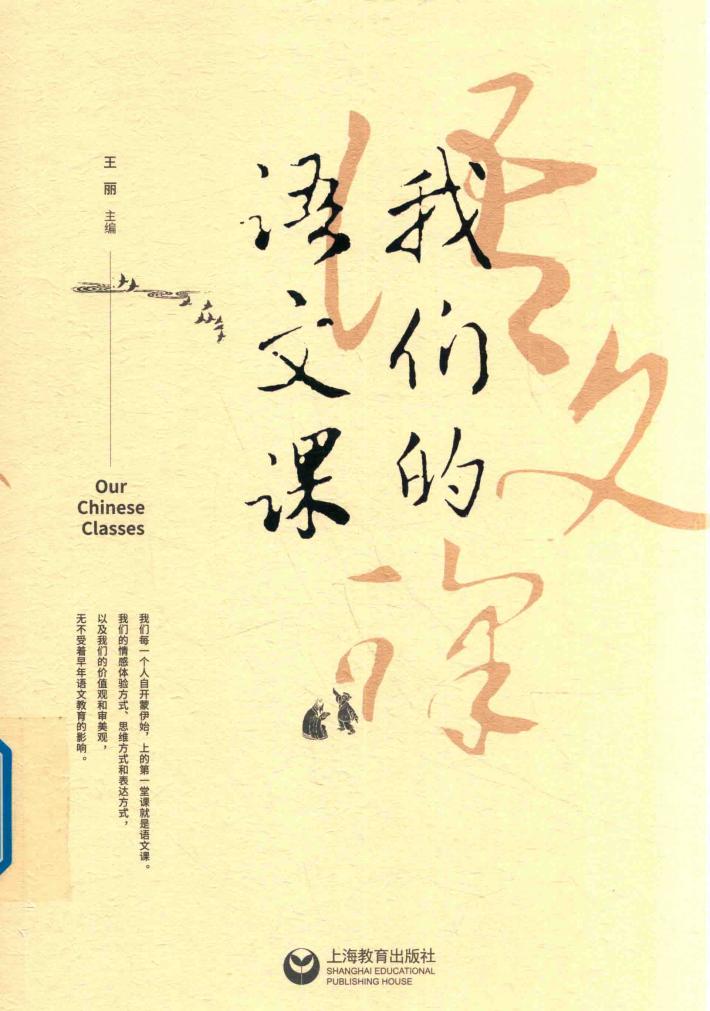 我们的
语文课
王丽 主编
Our
Chinese
Classes
我们每一个人自开蒙伊始，上的第一堂课就是语文课。
我们的情感体验方式、思维方式和表达方式，
以及我们的价值观和审美观，
无不受着早年语文教育的影响。
语文课
上海教育出版社
SHANGHAI EDUCATIONAL
PUBLISHING HOUSE